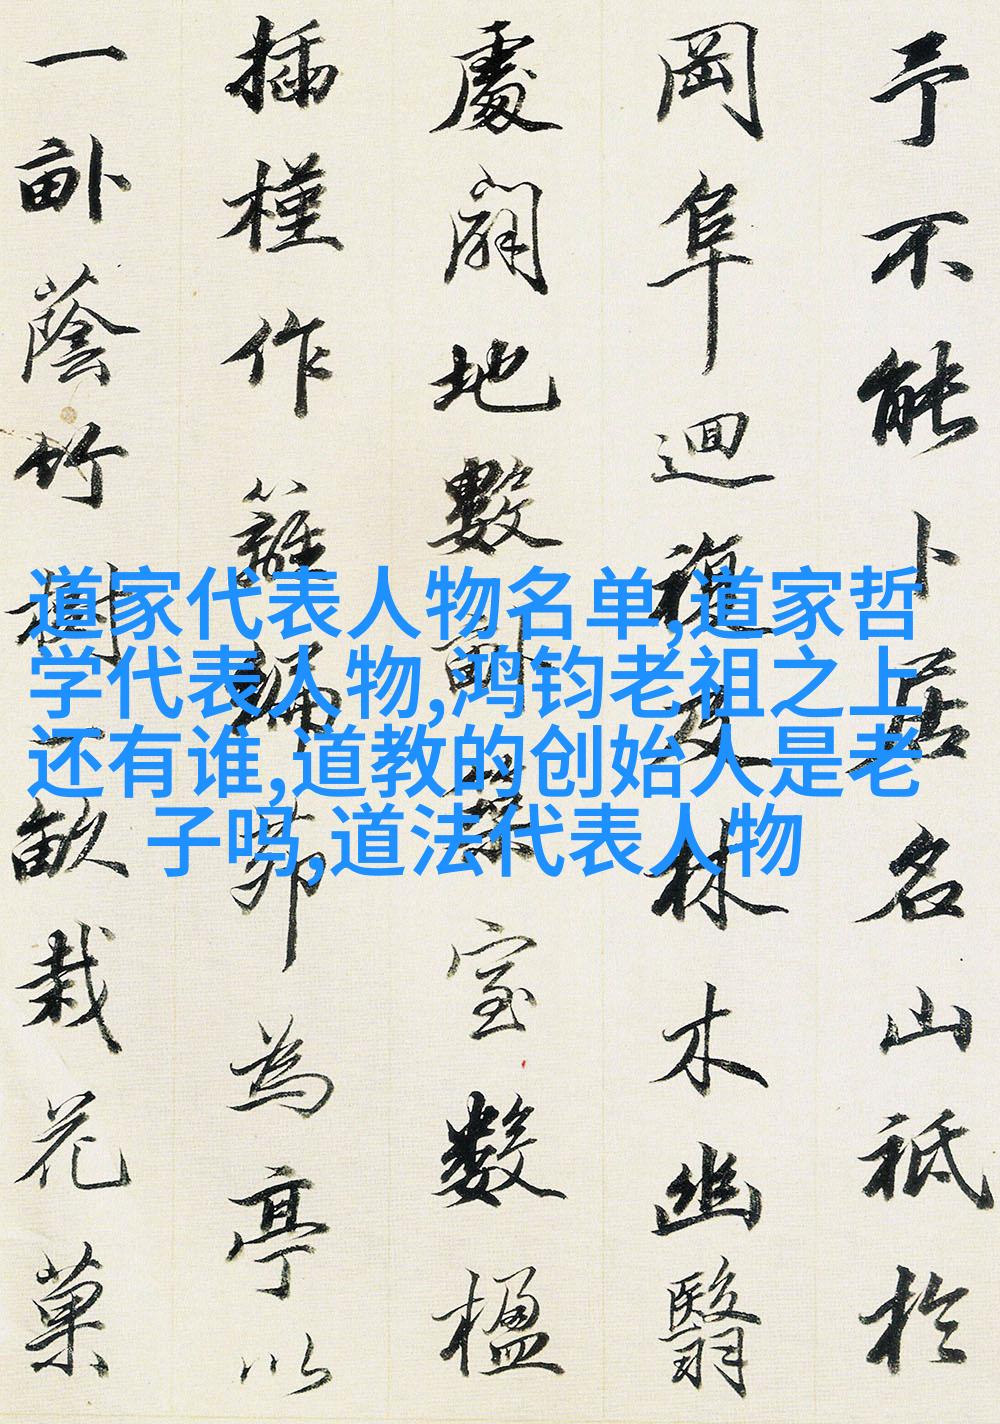 予不能卜居名山祗於
岡阜迴複及林木幽翳
處闢地數畝築室數楹
插槿作籬編茆為亭以
一畝蔭竹樹一畝栽花菓
道家代表人物名单,道家哲
学代表人物,鸿钧老祖之上
还有谁,道教的创始人是老
子吗,道法代表人物